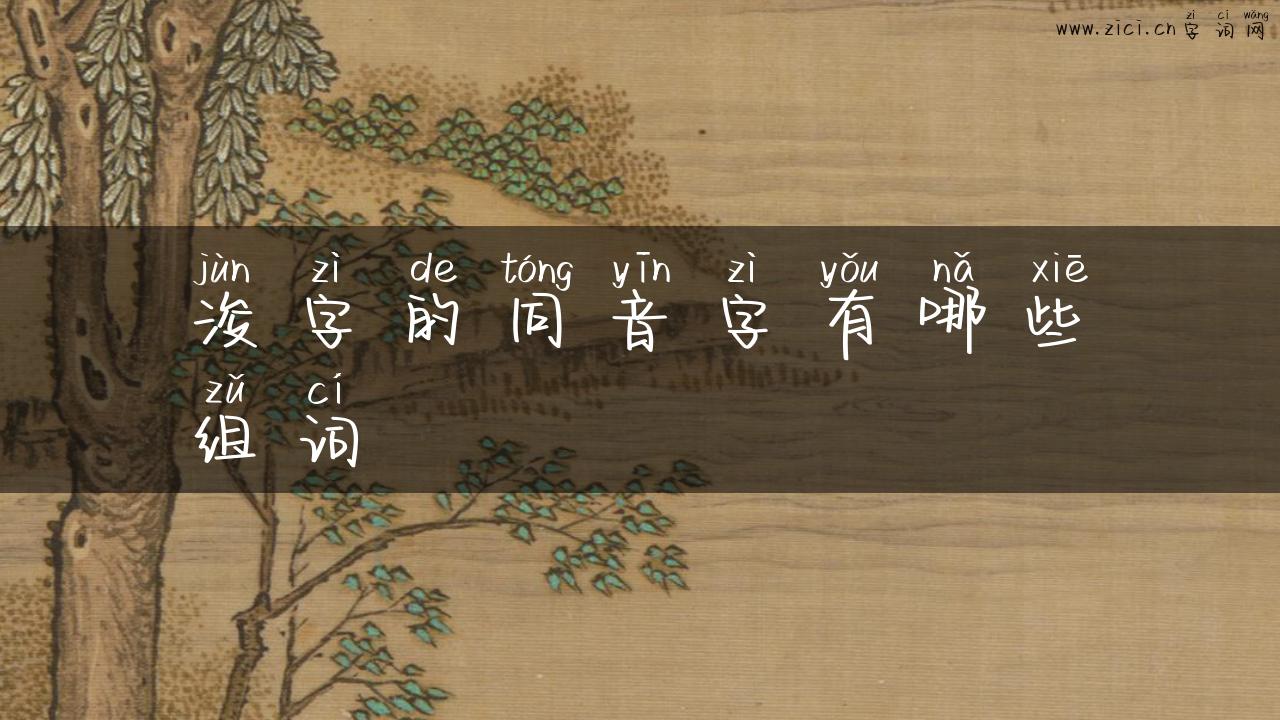 zì cí wǎng
www.zici.cn字词网
jùn zì de tóng yīn zì yǒu nǎ xiē
浚字的同音字有哪些
zǔ cí
组词